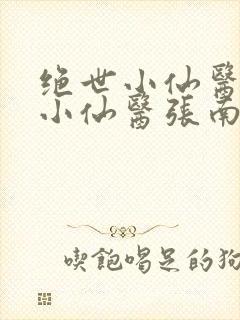 绝世小仙醫
小仙醫張南
喫飽喝足的狗